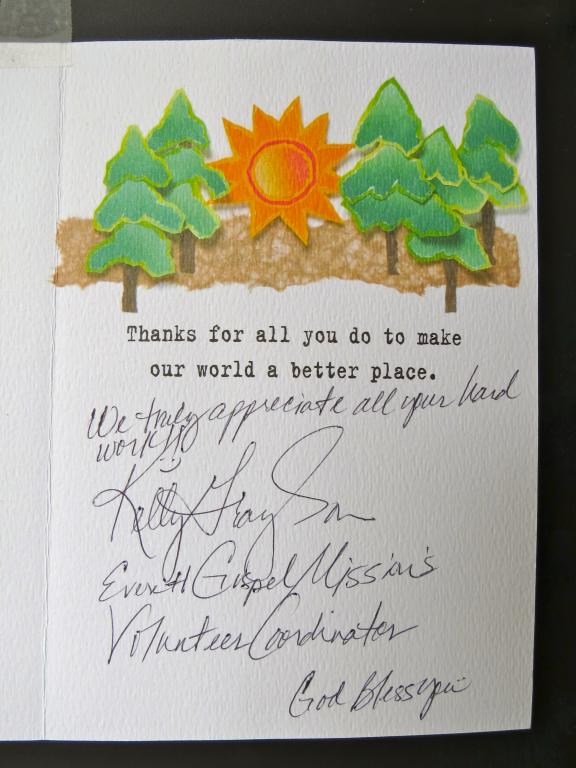 Thanks for all you do to make
our world a better place.
We truly appreciate all your hard
work!! :)
Kelly Gray Son
Everett Gospel Mission's
Volunteer Coordinator
God Bless you